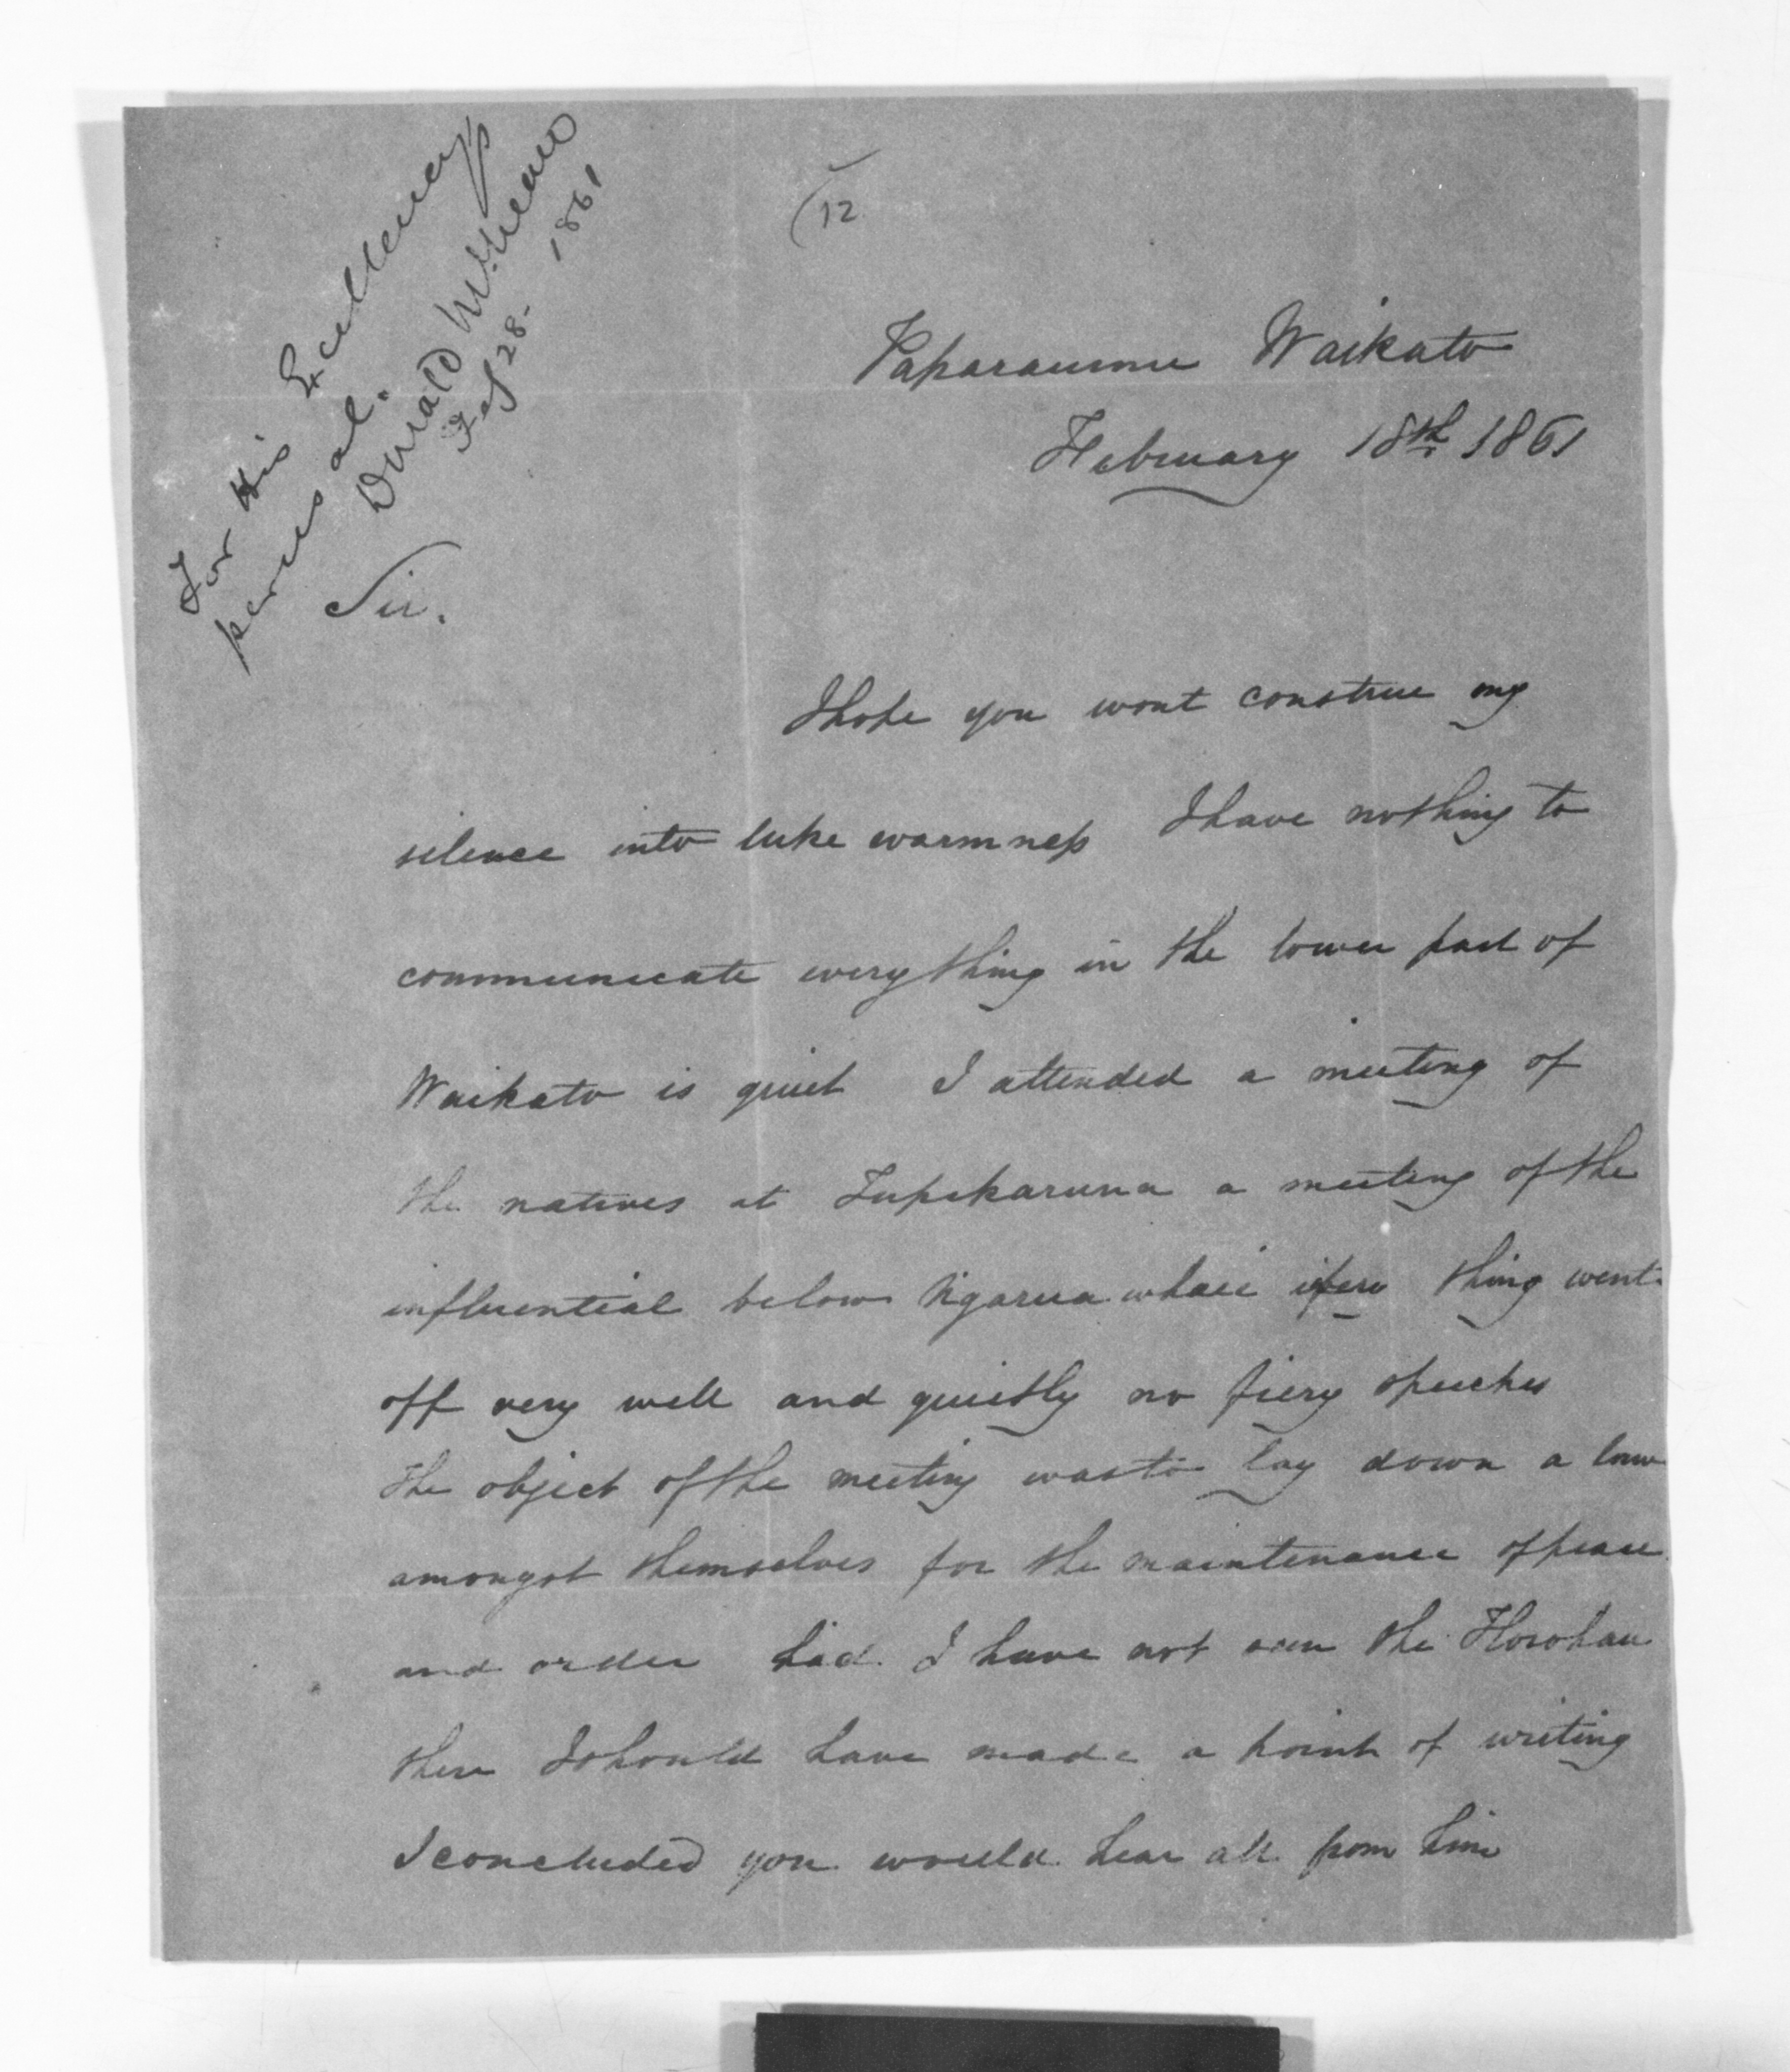 For His Excellency's
perusal.
Donald McLean
Feb 28- 1861
(12
Paparaumu Waikato
February 18th 1861
Sir.
I hope you wont construe my
silence into luke warmness I have nothing to
communicate every thing in the lower part of
Waikato is quiet I attended a meeting of
the natives at Tupikaruna a meeting of the
influential below Ngarua whaii thing went
off very well and quietly no fiery speeches
the object of the meeting was to lay down a law
amongst themselves for the maintenance of peace
and order had I have not seen the
there I should have made a point of writing
I concluded you would hear all from him